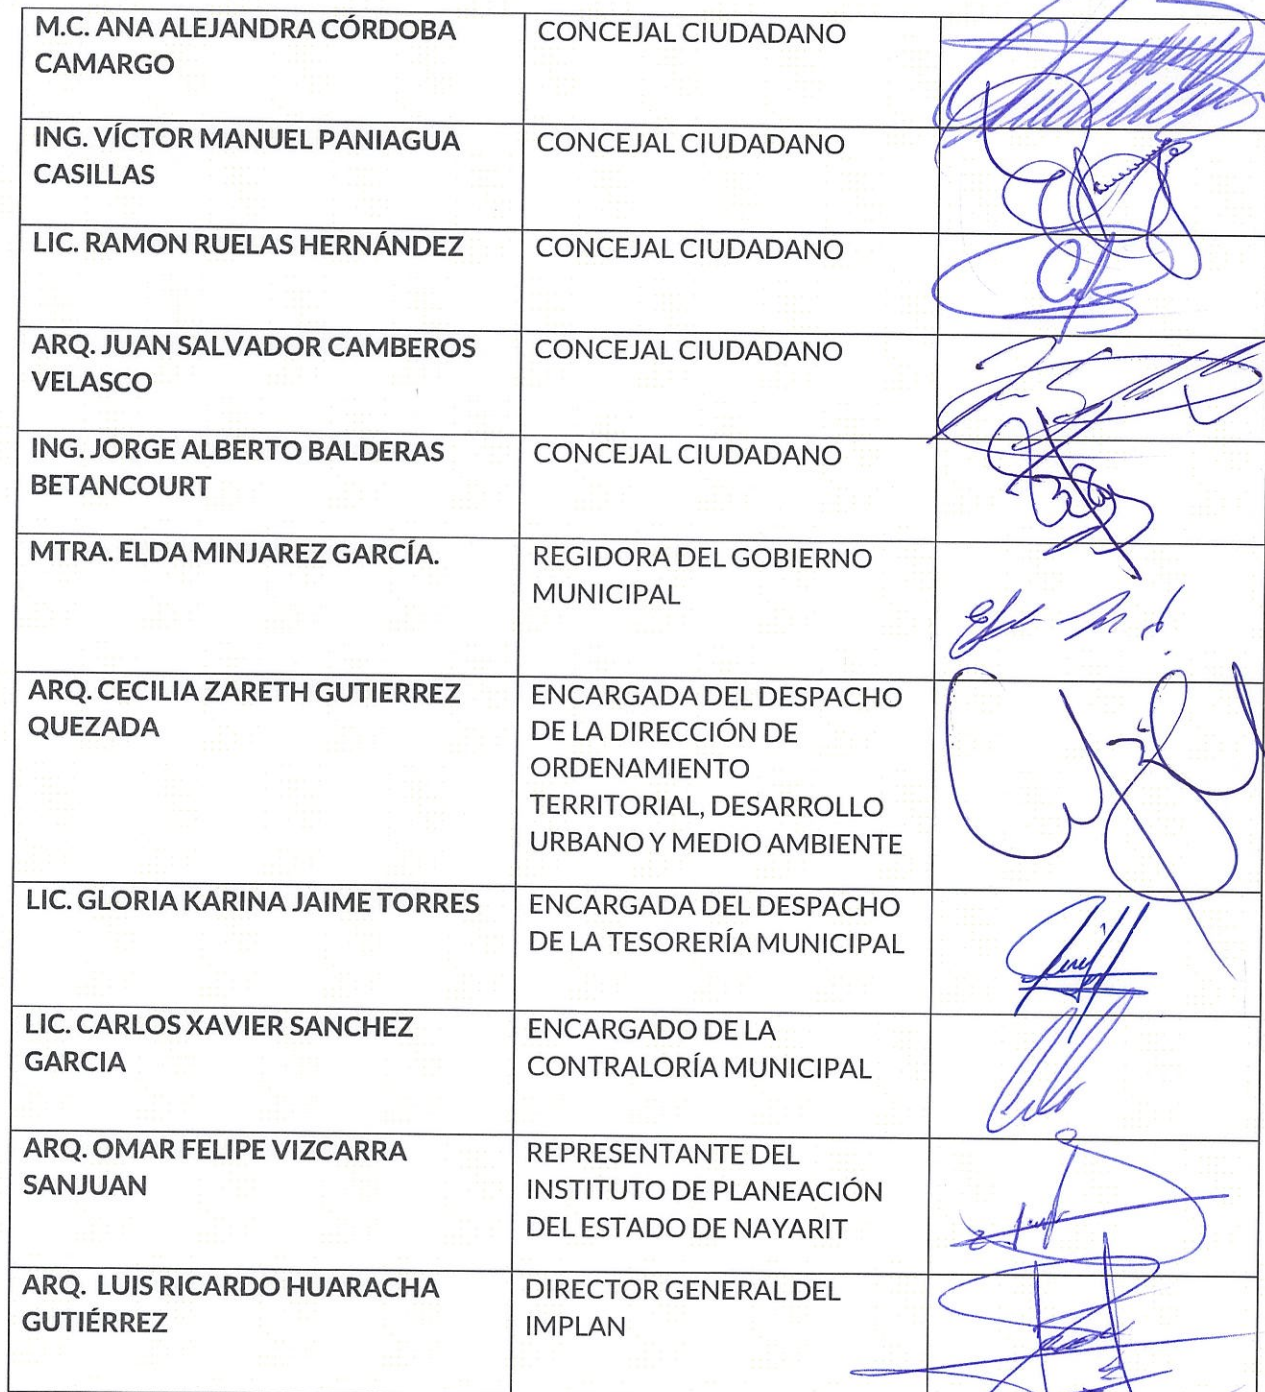 M.C. ANA ALEJANDRA CÓRDOBA
CAMARGO
CONCEJAL CIUDADANO
ING. VÍCTOR MANUEL PANIAGUA
CASILLAS
CONCEJAL CIUDADANO
LIC. RAMON RUELAS HERNÁNDEZ
CONCEJAL CIUDADANO
ARQ. JUAN SALVADOR CAMBEROS
VELASCO
CONCEJAL CIUDADANO
ING. JORGE ALBERTO BALDERAS
BETANCOURT
CONCEJAL CIUDADANO
MTRA. ELDA MINJAREZ GARCÍA.
REGIDORA DEL GOBIERNO
MUNICIPAL
ARQ. CECILIA ZARETH GUTIERREZ
QUEZADA
ENCARGADA DEL DESPACHO
DE LA DIRECCIÓN DE
ORDENAMIENTO
TERRITORIAL, DESARROLLO
URBANO Y MEDIO AMBIENTE
LIC. GLORIA KARINA JAIME TORRES
ENCARGADA DEL DESPACHO
DE LA TESORERÍA MUNICIPAL
LIC. CARLOS XAVIER SANCHEZ
GARCIA
ENCARGADO DE LA
CONTRALORÍA MUNICIPAL
ARQ. OMAR FELIPE VIZCARRA
SANJUAN
REPRESENTANTE DEL
INSTITUTO DE PLANEACIÓN
DEL ESTADO DE NAYARIT
ARQ. LUIS RICARDO HUARACHA
GUTIÉRREZ
DIRECTOR GENERAL DEL
IMPLAN